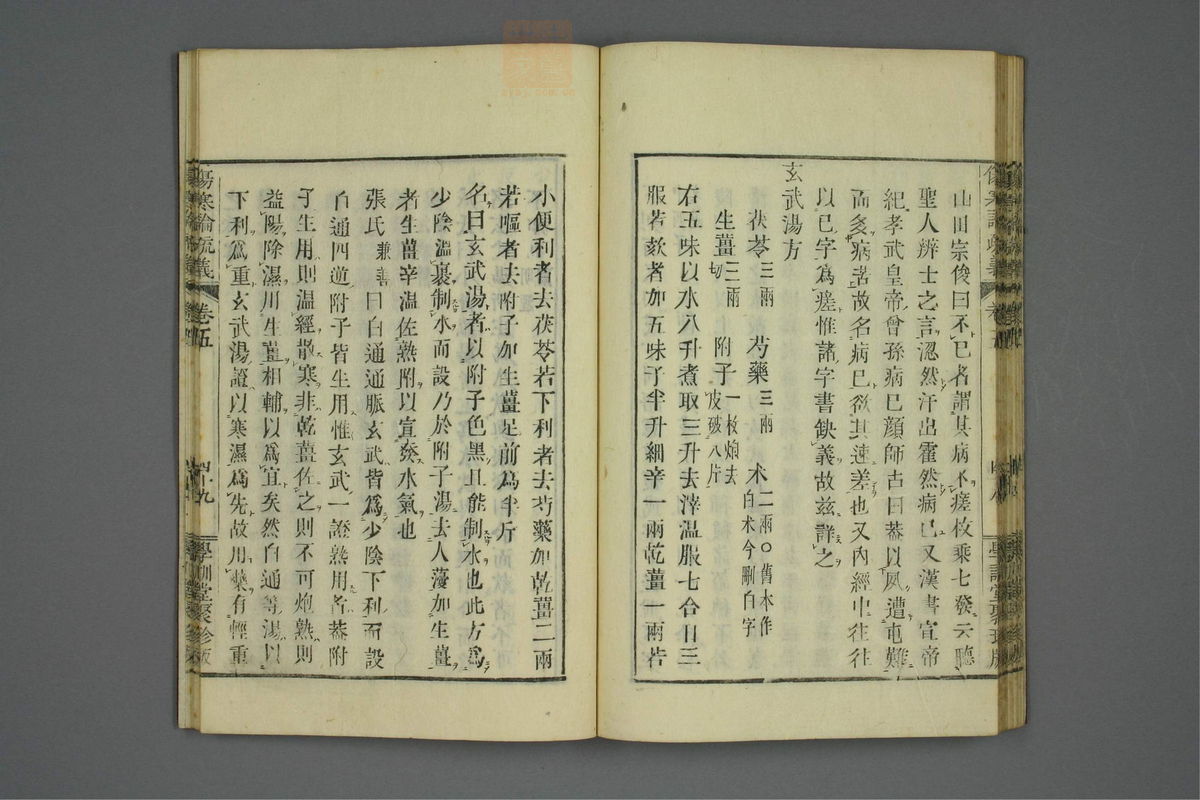 山田宗俊曰不已者謂其病不瘥枚乘七發云聽
聖人辨士之言涊然汗出霍然病已又漢書宣帝
紀孝武皇帝曾孫病已顏師古曰蓋以夙遭屯難
而多病苦故名病已欲其速差也又內經中往往
以已字爲瘥惟諸字書缺義故茲詳之
玄武湯方
茯苓三兩 芍藥三兩 朮二兩○舊本作白朮今刪白字
生薑三兩切 附子一枚炮去皮破八片
右五味以水八升煮取三升去滓溫服七合日三
服若欬者加五味子半升細辛一兩乾薑一兩若
小便利者去茯苓若下利者去芍藥加乾薑二兩
若嘔者去附子加生薑足前爲半斤
名曰玄武湯者以附子色黑且能制水也此方爲
少陰溫裏制水而設乃於附子湯去人蓡加生薑
者生薑辛溫佐熟附以宣發水氣也
張氏兼善曰白通通脈玄武皆爲少陰下利而設
白通四逆附子皆生用惟玄武一證熟用者蓋附
子生用則溫經散寒非乾薑佐之則不可炮熟則
益陽除濕用生薑相輔以爲宜矣然白通等湯以
下利爲重玄武湯證以寒濕爲先故用藥有輕重
傷寒論疏義 卷五 四十九 學訓堂聚珍版